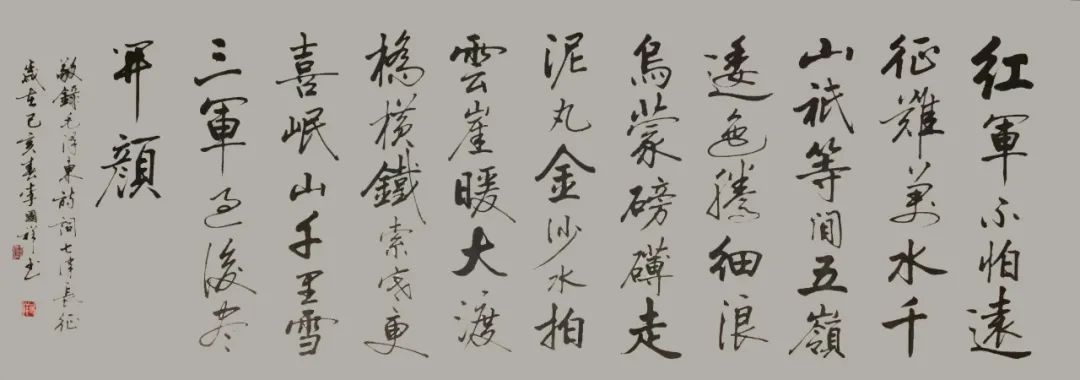 红軍不怕遠
征難萬水千
山祇等閒五嶺
逶迤騰細浪
烏蒙磅礴走
泥丸金沙水拍
雲崖暖大渡
橋橫鐵索寒更
喜岷山千里雪
三軍過後盡
開顏
敬錄毛澤東詩詞七律長征
歲在己亥春李國祥书